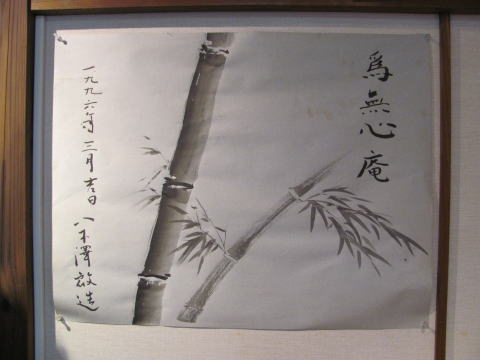 爲無心庵
一九九六年三月吉日 八木澤啟造